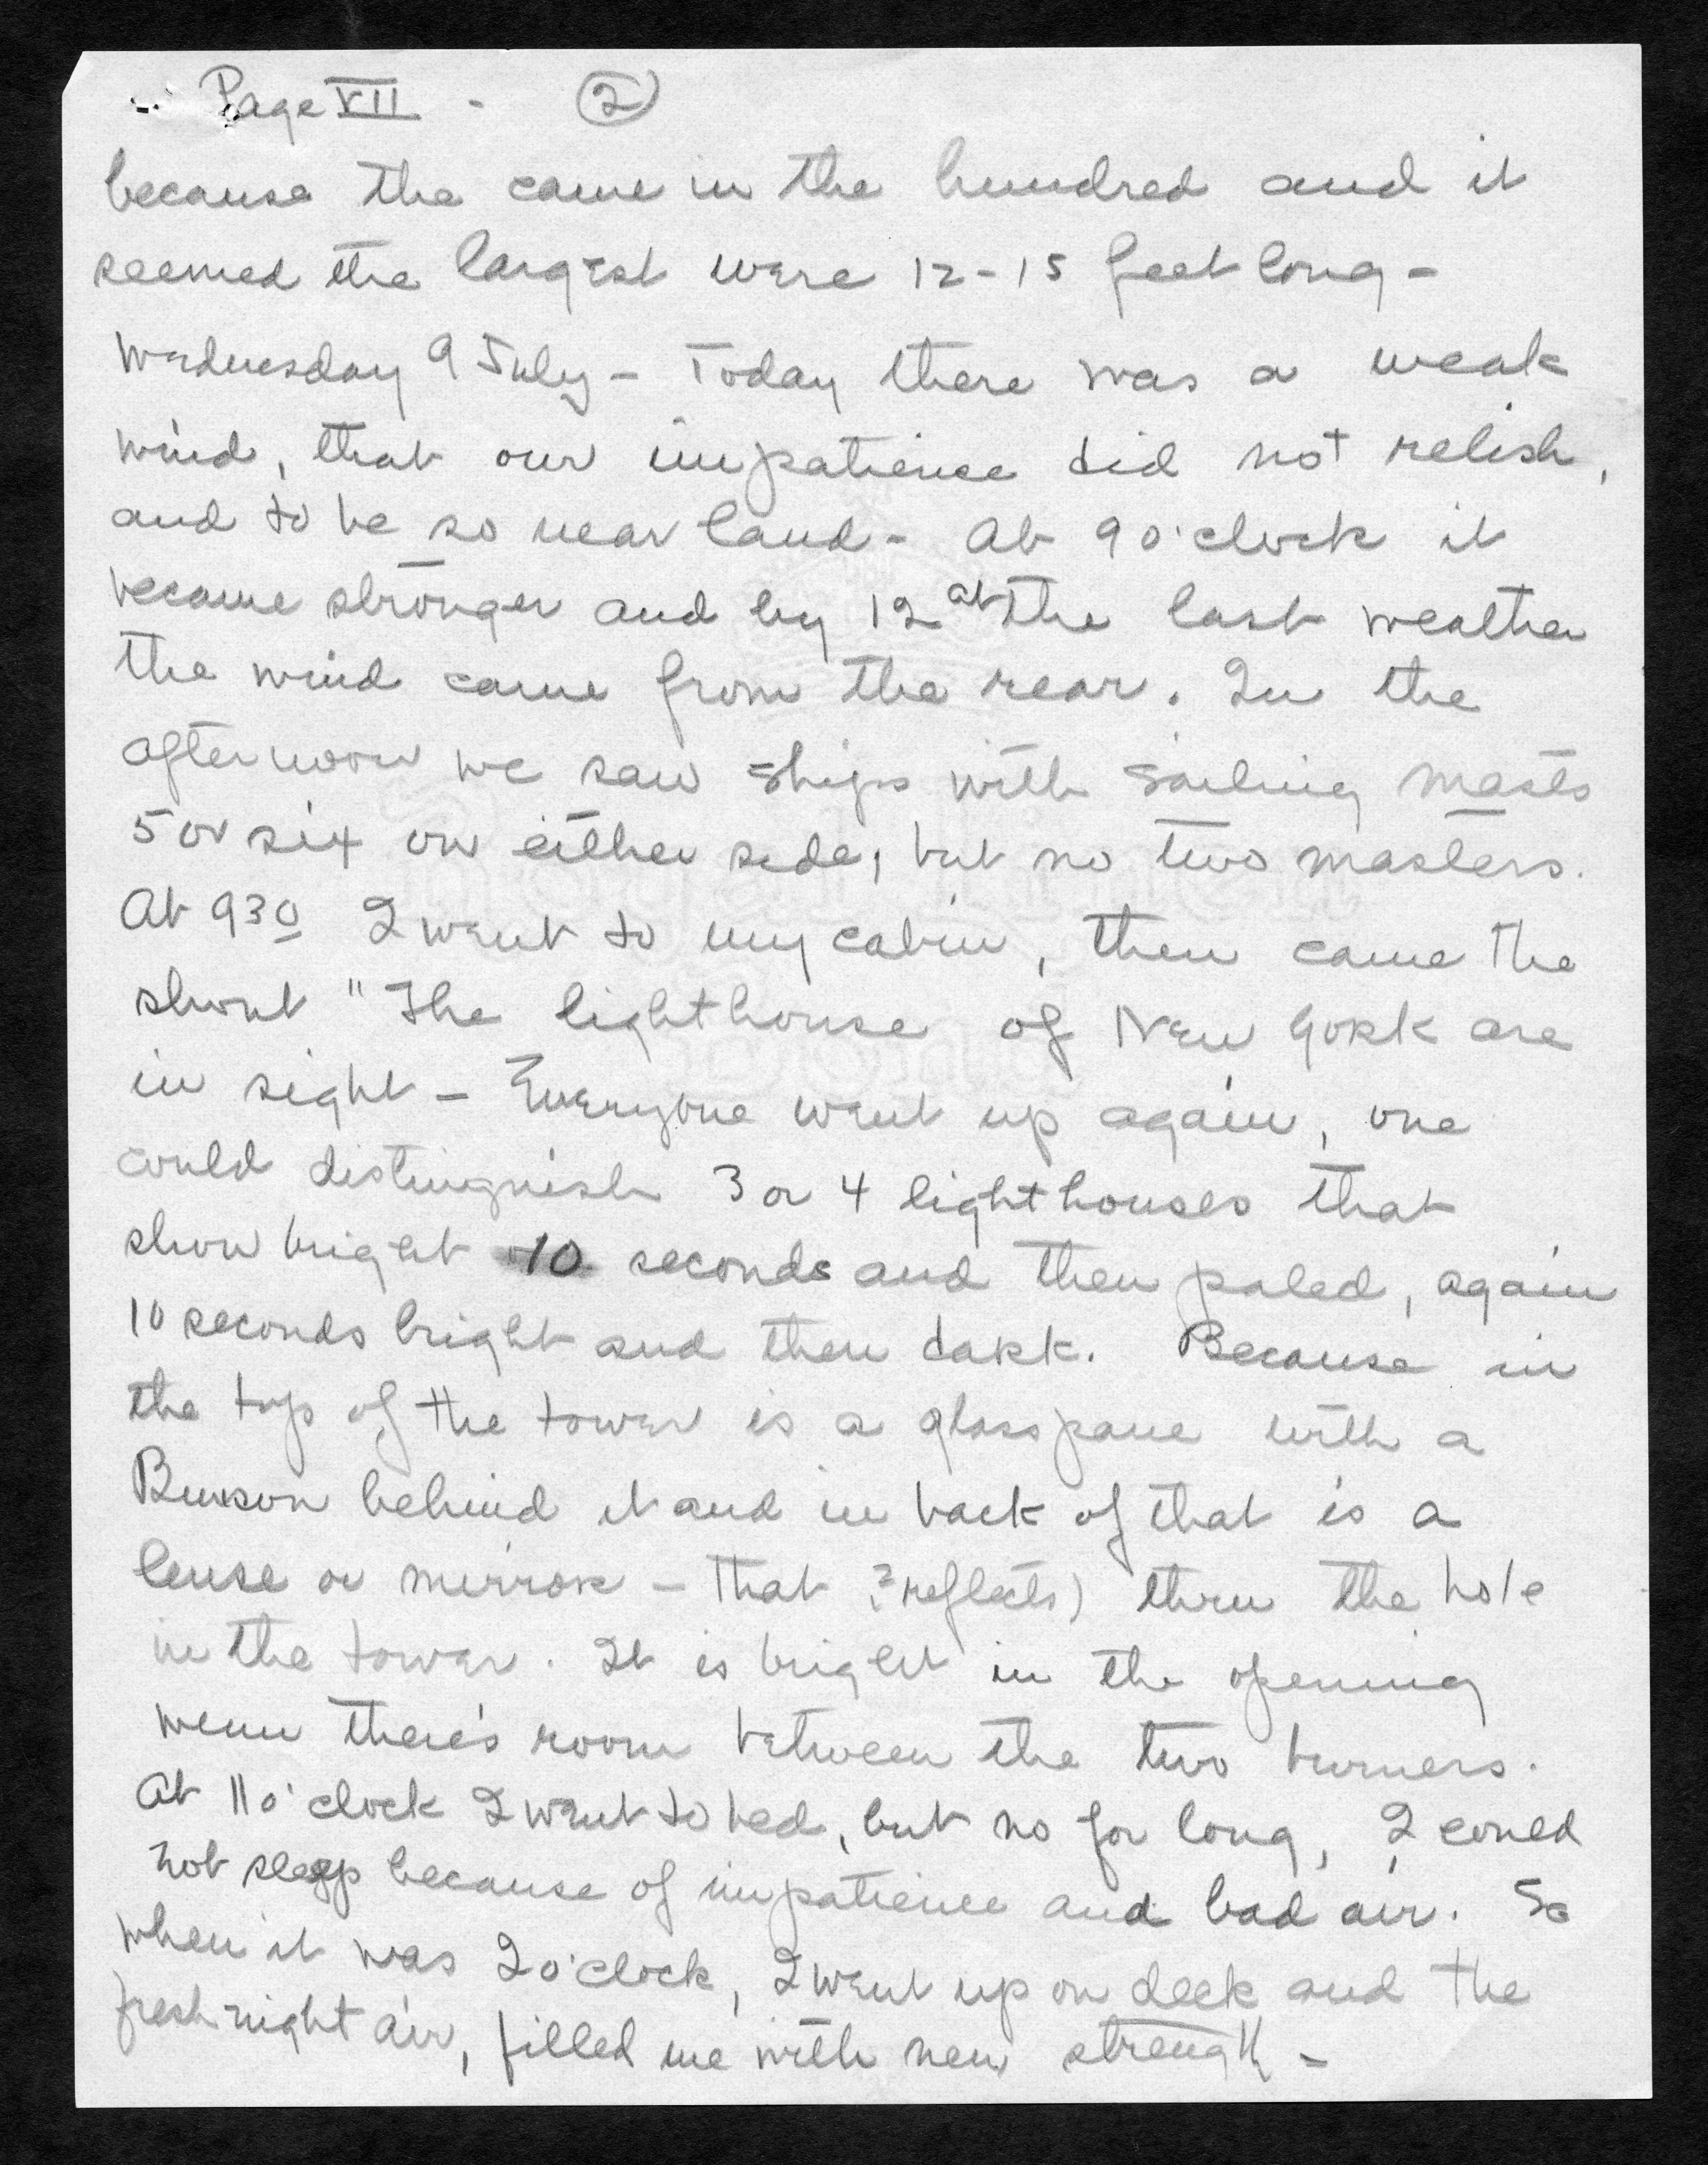 Page VII - 2
because the came in the hundred and it
seemed the largest were 12-15 feet long -
Wednesday 9 July - Today there was a weak
wind, that our impatience did not relish,
and to be so near land - At 9 o'clock it
became stronger and by 12 at the last weather
the wind came from the rear. In the
afternoon we saw ships with sailing masts
5 or six on either side, but no two masters.
At 930 I went to my cabin, then came the
shout "The lighthouse of New York are
in sight - Everyone went up again, one
could distinguish 3 or 4 lighthouses that
show bright 10 seconds and then paled, again
10 seconds bright and then dark. Because in
the top of the tower is a glass pane with a
Bunson behind it and in back of that is a
lense or mirror - that (? reflects) thru the hole
in the tower. It is bright in the opening
wenn there's room between the two burners.
At 11 o'clock I went to bed, but no for long, I could
not sleep because of impatience and bad air. So
when it was 2 o'clock, I went up on deck and the
fresh night air, filled me with new strength -